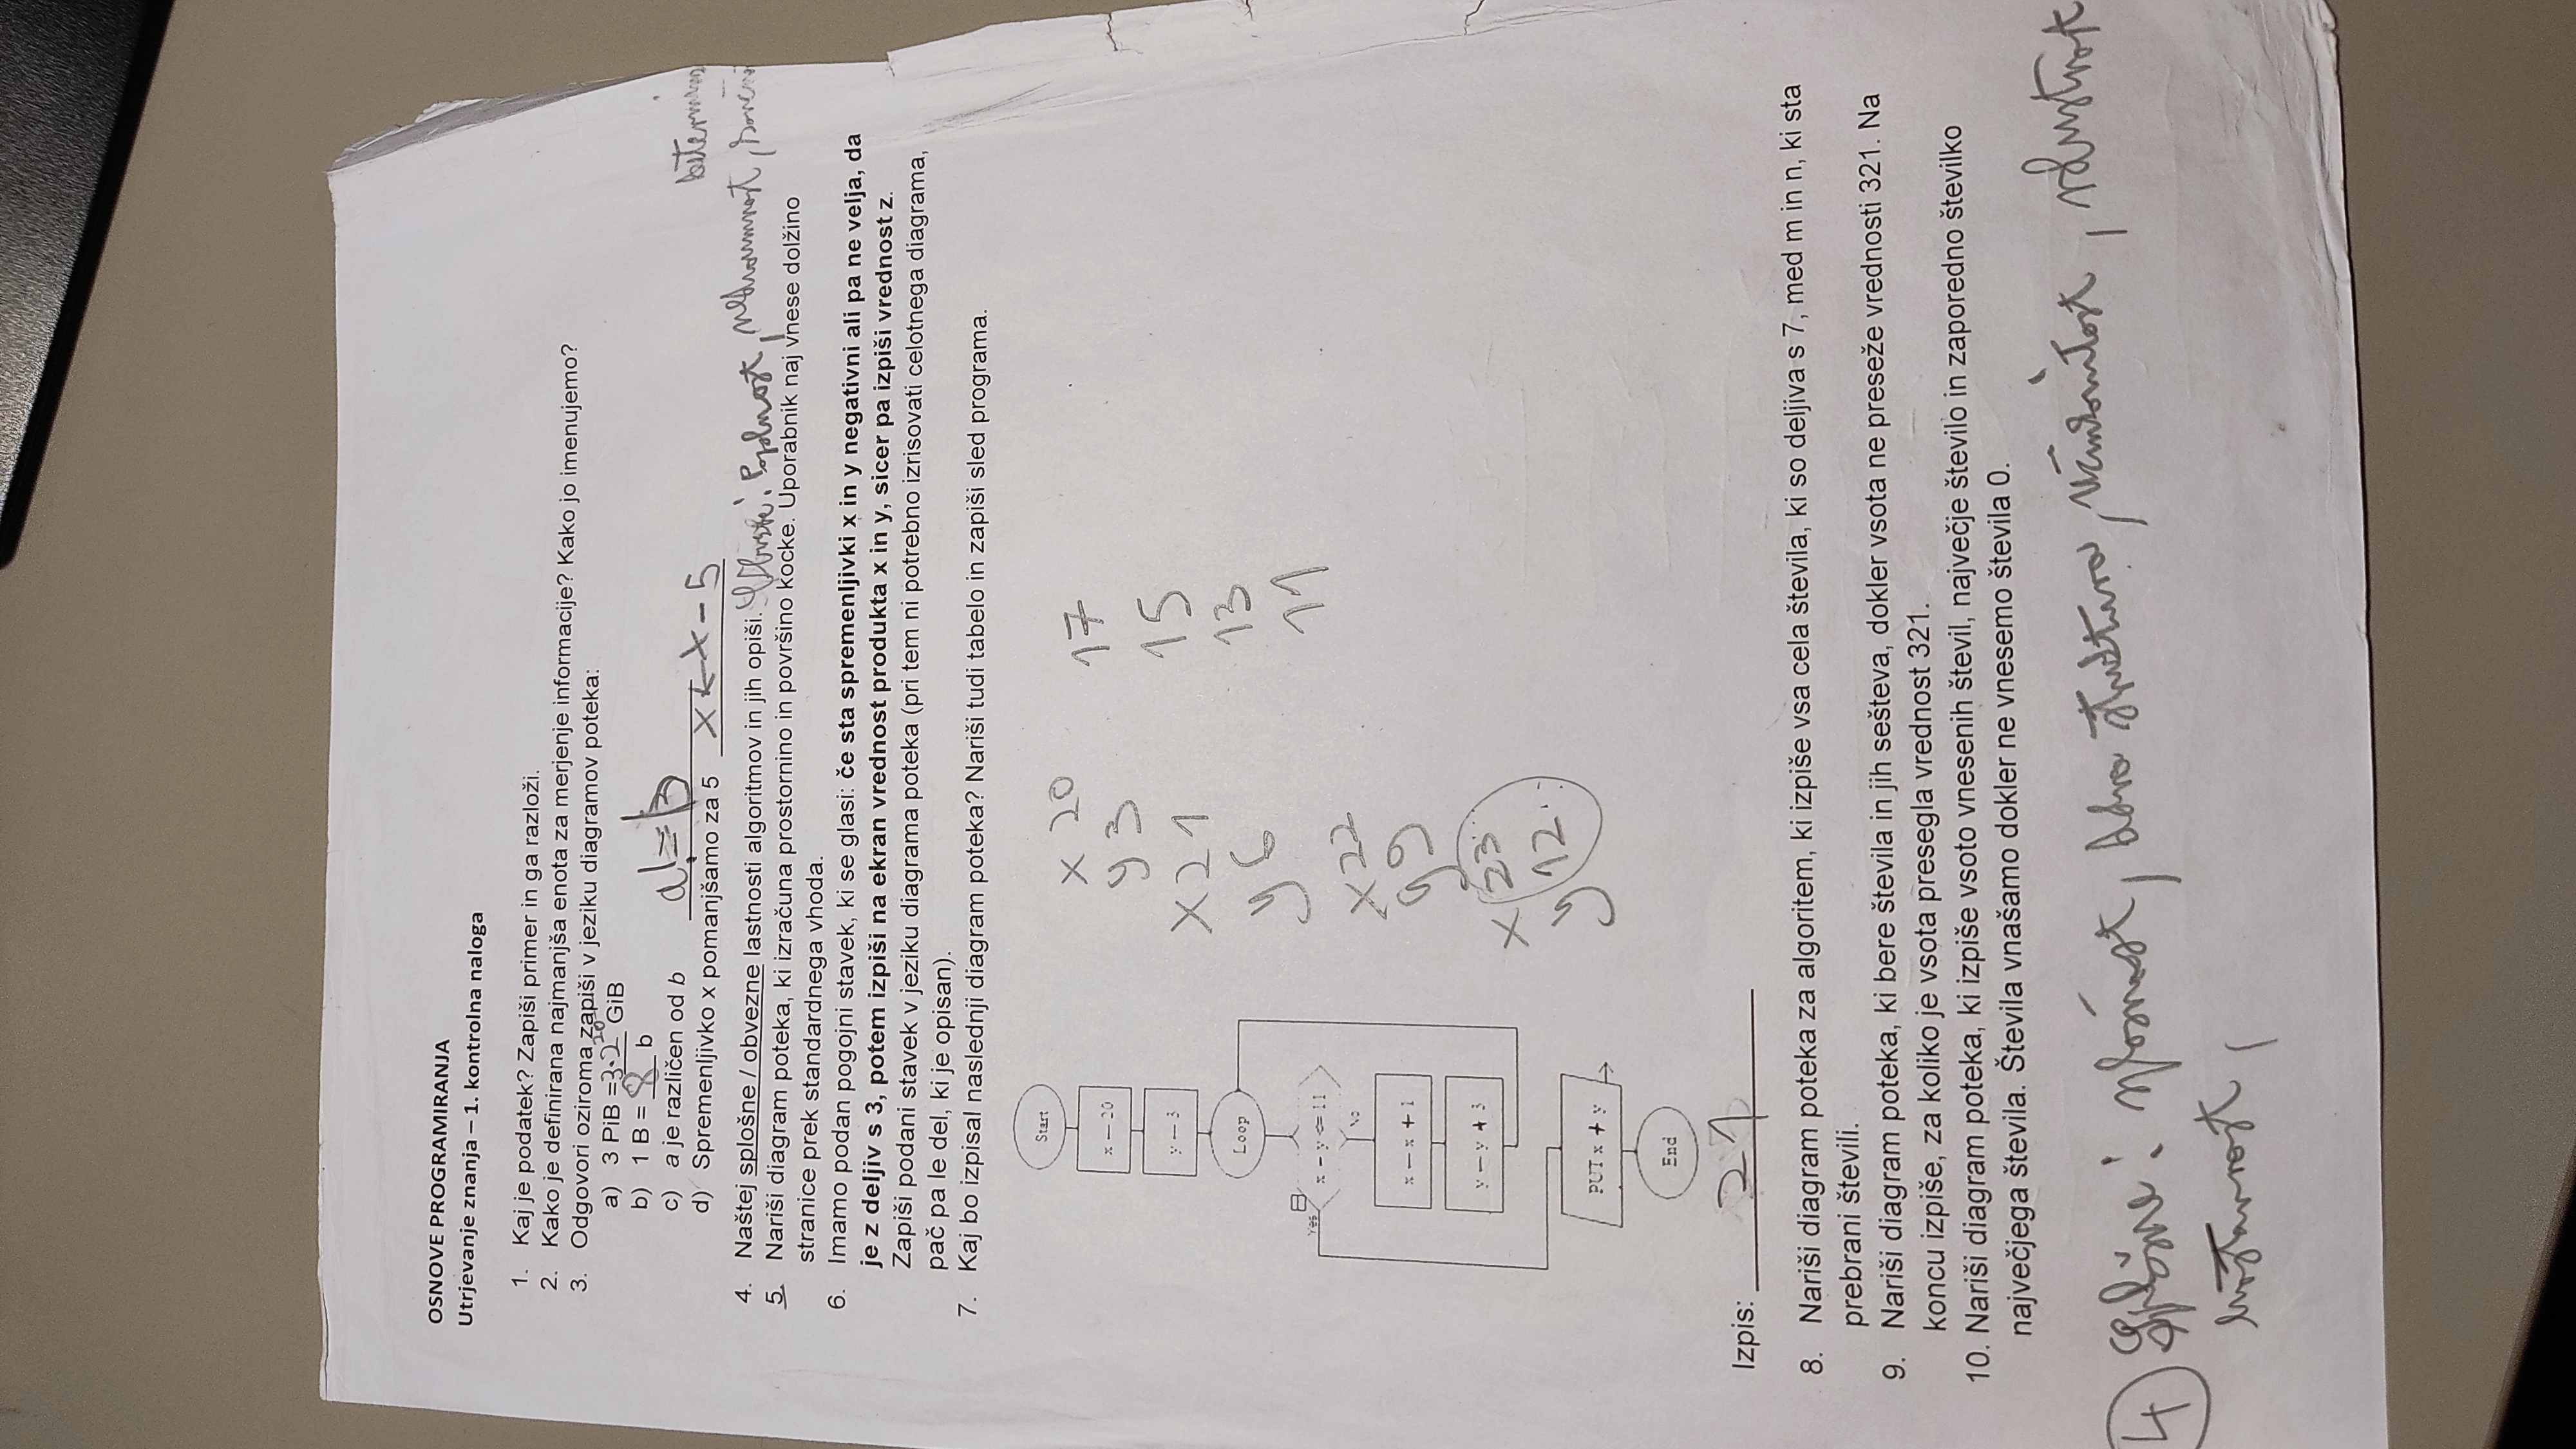 OSNOVE PROGRAMIRANJA
Utrjevanje znanja – 1. kontrolna naloga
1. Kaj je podatek? Zapiši primer in ga razloži.
2. Kako je definirana najmanjša enota za merjenje informacije? Kako jo imenujemo?
3. Odgovori oziroma zapiši v jeziku diagramov poteka:
a) 3 PiB = 3·2^20 GiB
b) 1 B = 8 b
c) a je različen od b a!=b
d) Spremenljivko x pomanjšamo za 5 x ← x - 5
4. Naštej splošne / obvezne lastnosti algoritmov in jih opiši. Popolnost, nedvoumnost,
5. Nariši diagram poteka, ki izračuna prostornino in površino kocke. Uporabnik naj vnese dolžino
stranice prek standardnega vhoda.
6. Imamo podan pogojni stavek, ki se glasi: če sta spremenljivki x in y negativni ali pa ne velja, da
je z deljiv s 3, potem izpiši na ekran vrednost produkta x in y, sicer pa izpiši vrednost z.
Zapiši podani stavek v jeziku diagrama poteka (pri tem ni potrebno izrisovati celotnega diagrama,
pač pa le del, ki je opisan).
7. Kaj bo izpisal naslednji diagram poteka? Nariši tudi tabelo in zapiši sled programa.
Start
x ← 20
y ← 3
Loop
Yes
x - y <= 11
No
x ← x + 1
y ← y + 3
PUT x + y
End
x 20
y 3
x 21
y 6
x 22
y 9
x 23
y 12
17
15
13
11
Izpis: 21
8. Nariši diagram poteka za algoritem, ki izpiše vsa cela števila, ki so deljiva s 7, med m in n, ki sta
prebrani števili.
9. Nariši diagram poteka, ki bere števila in jih sešteva, dokler vsota ne preseže vrednosti 321. Na
koncu izpiše, za koliko je vsota presegla vrednost 321.
10. Nariši diagram poteka, ki izpiše vsoto vnesenih števil, največje število in zaporedno številko
največjega števila. Števila vnašamo dokler ne vnesemo števila 0.
4 Splošne: splošnost, dobra struktura, učinkovitost, robustnost